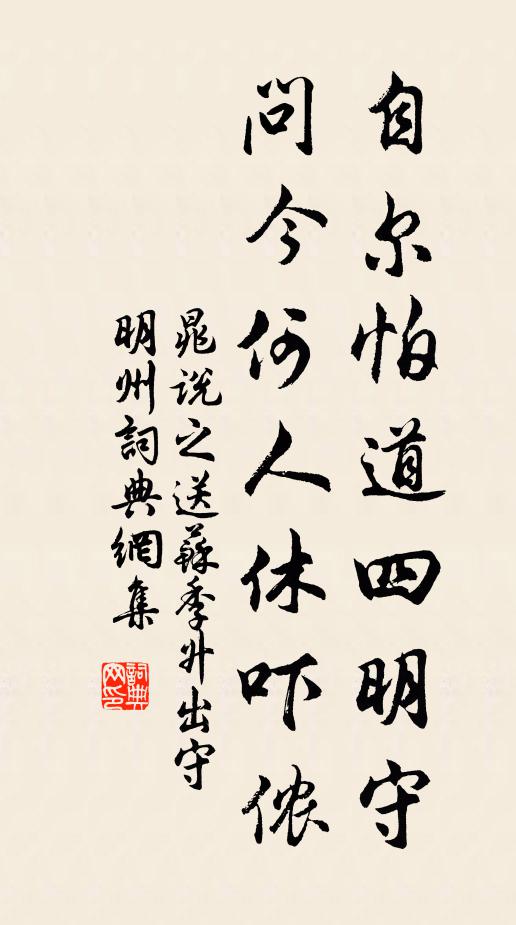 自尔怕道四明守
问今何人休吓侬
晁说之送蘇季升出守
明州詞典網集
詞典
网印